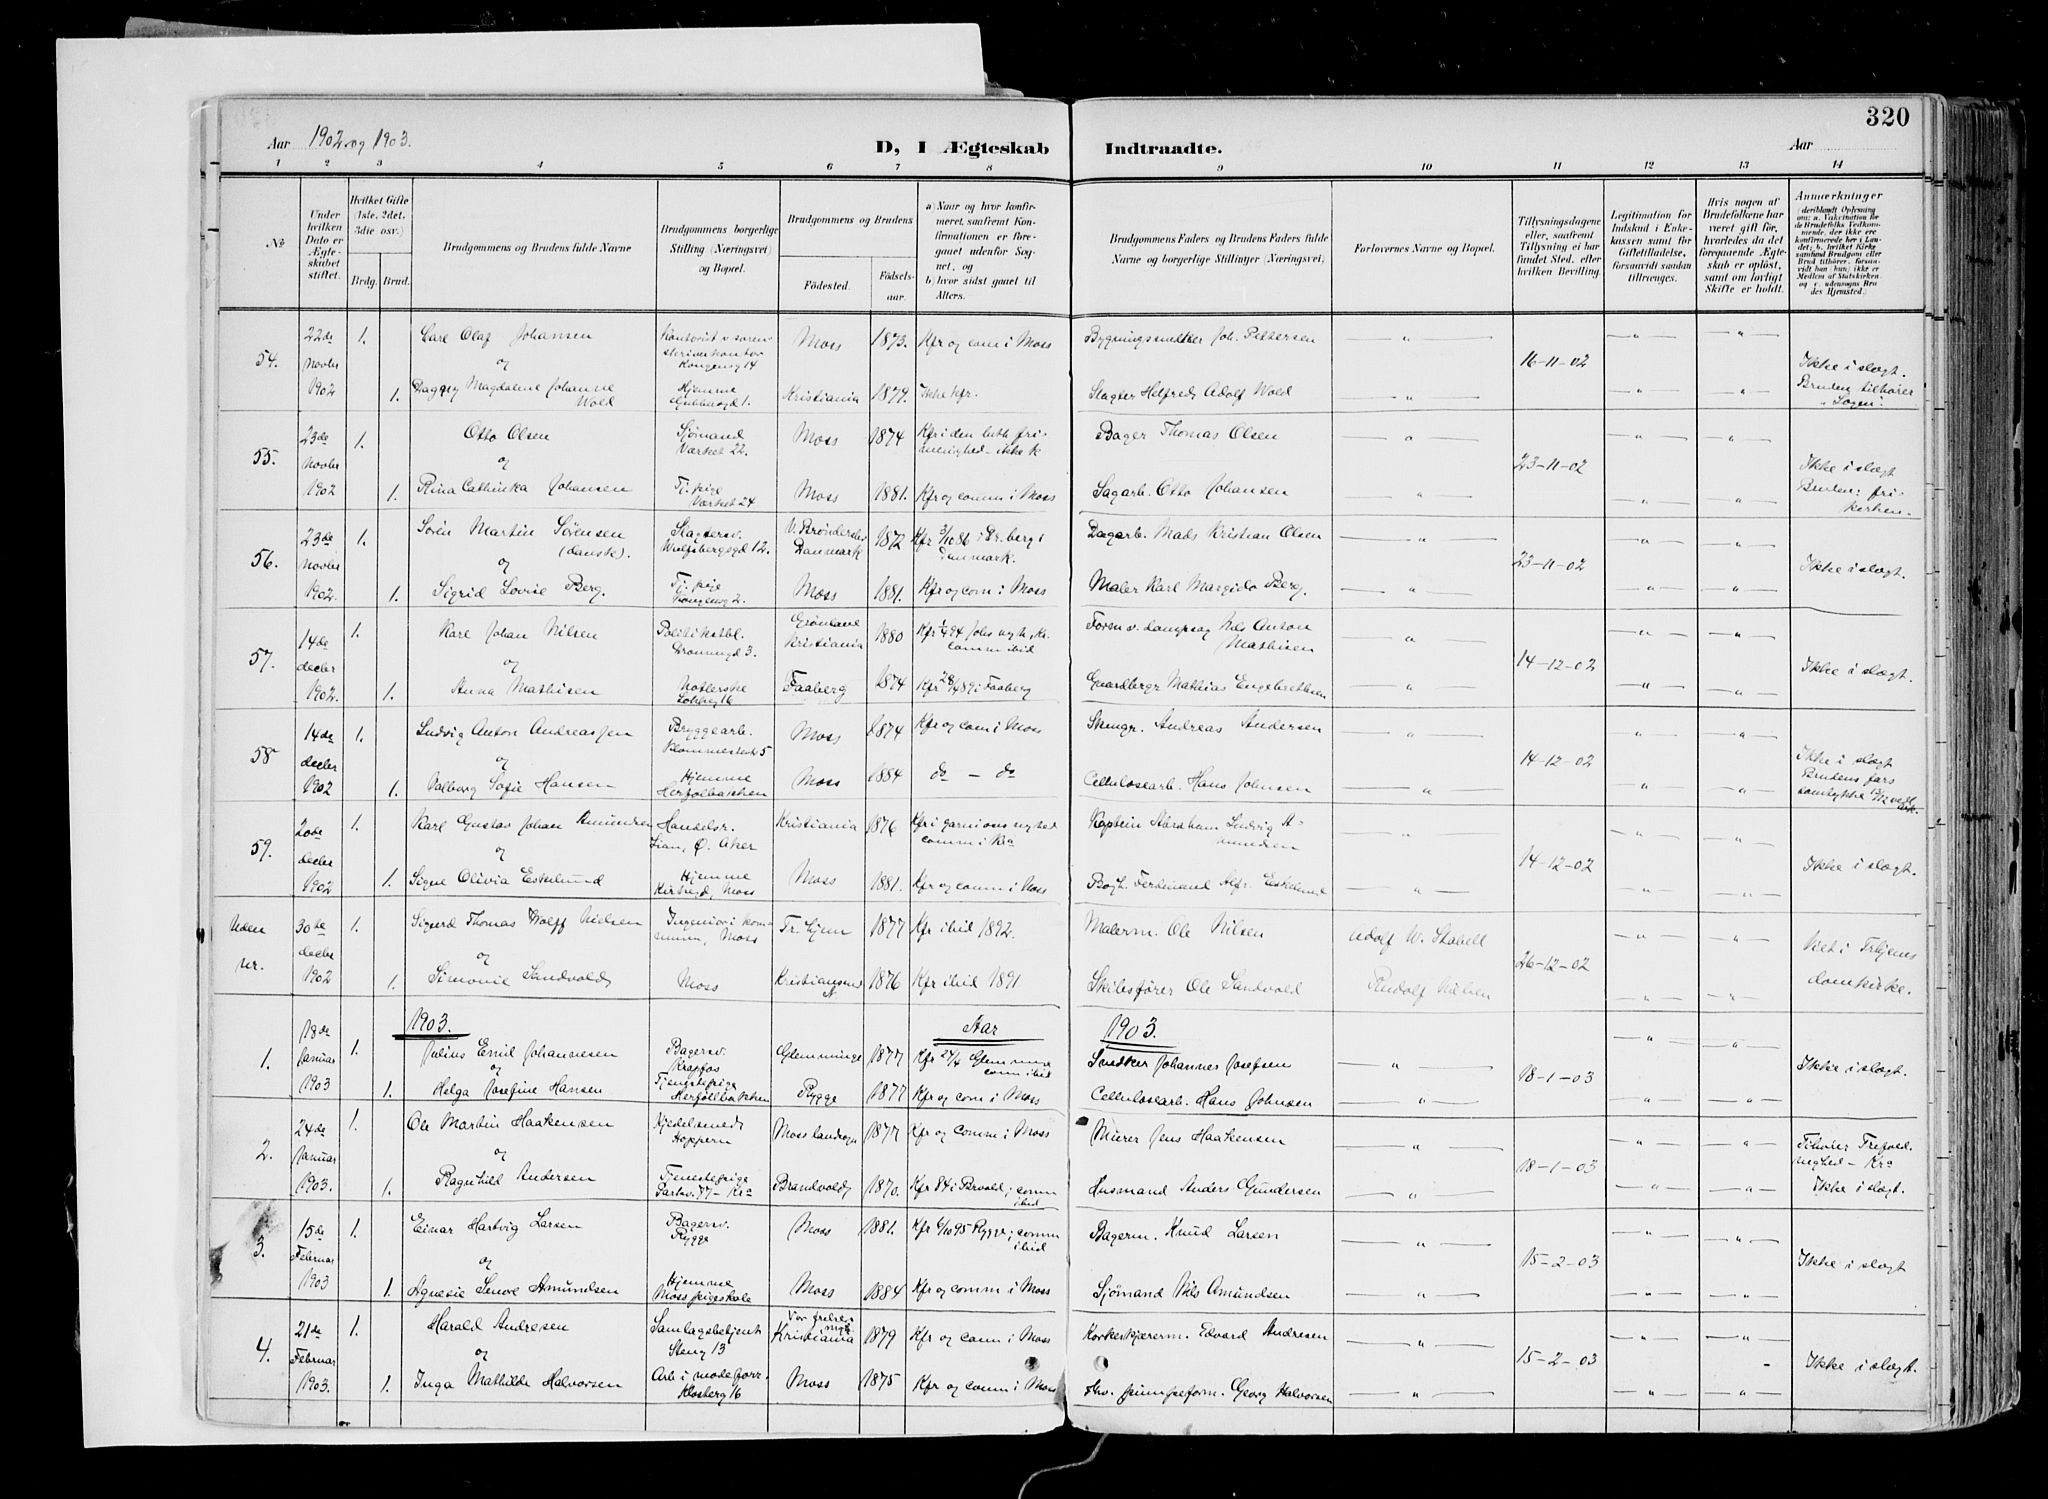 320
Aar 1902 og 1903.
D, I Ægteskab Indtraadte.
Aar
1 2 3 4 5 6 7 8 9 10 11 12 13 14
No
Under hvilken Dato er Ægteskabet stiftet.
Hvilket Gifte (1ste, 2det, 3die osv.)
Brdg. Brud.
Brudgommens og Brudens fulde Navne
Brudgommens borgerlige Stilling (Næringsvei) og Bopæl.
Brudgommens og Brudens
Födested.
Födselsaar.
a) Naar og hvor konfirmeret, saafremt Konfirmationen er foregaaet udenfor Sognet, og
b) hvor sidst gaaet til Alters.
Brudgommens Faders og Brudens Faders fulde Navne og borgerlige Stillinger (Næringsvei)
Forlovernes Navne og Bopæl.
Tillysningsdagene eller, saafremt Tillysning ei har fundet Sted, efter hvilken Bevilling.
Legitimation for Indskud i Enkekassen samt for Giftetilladelse, forsaavidt saadan tiltrænges.
Hvis nogen af Brudefolkene har været gift før, hvorledes da det foregaaende Ægteskab er opløst, samt om lovligt Skifte er holdt.
Anmærkninger
54. 22de Novbr 1902 1. Carl Olaf Johansen Kontorist v. soren- skriverkontor Kongensg 14 Moss 1873. Kfr og com i Moss Bygningssnedker Joh. Pettersen 16-11-02
og
1. Dagny Magdalene Johanne Wold Hjemme 1. Kristiania 1879. Ikke kfr. Slagter Helfred Adolf Wold Ikke i slægt. Bruden tilhører "Logen".
55. 23de Novbr 1902 1. Otto Olsen Sjömand Værket 22. Moss 1874 Kfr i den luth fri- menighed - ikke k Bager Thomas Olsen 23-11-02
og
1. Rina Cathinka Johansen Tj. pige Værket 24 Moss 1881. Kfr og comm i Moss Sagarb. Otto Johansen Ikke i slægt Bruden: fri- kirken.
56. 23de Novbr 1902. 1. Sören Martin Sörensen (danske). Slagtersv. Wulfsbergsgd 12. V. Brönderslev Danmark 1872 Danmark. Dagarb. Mads Kristian Olsen 23-11-02
og
1. Sigrid Lovise Berg. Tj. pige Moss 1881. Kfr og com i Moss Maler Karl Margido Berg. Ikke i slægt.
57. 14de decbr 1902. 1. Karl Johan Nilsen Politikstbl. Dronningd 3. Grönland Kristiania 1880 comm ibid Nils Anton Mathisen 14-12-02
og
1. Anna Mathisen Faaberg 1874 Kfr 28/4 89 i Faaberg Gaardbrgr Mathias Engebrethsen Ikke i slægt.
58 14de decbr 1902 1. Ludvig Anton Andreassen Bryggearb. 5 Moss 1874 Kfr og com i Moss Andreas Andersen 14-12-02
og
1. Valborg Sofie Hansen Hjemme Herfölbakken Moss 1884 do - do Cellulosearb. Hans Johnsen Ikke i slægt Brudens fars samtykke
59. 20de decbr 1902 1. Karl Gustav Johan Amundsen Handelsr. Lian, Ö. Aker Kristiania 1876 Kfr i garnisons mghed comm i Kra Kaptein Abraham Ludvig Amundsen 14-12-02
og
1. Signe Olivia Eskelund Hjemme Kirkegd, Moss Moss 1881. Kfr og comm i Moss Bogh. Ferdinand Alfr. Eskelund Ikke i slægt.
Uden nr. 30te decbr 1902 1. Sigurd Thomas Wolff Nielsen Ingeniør i kommunen, Moss Tr.hjem 1877 Kfr ibid 1892. Malerm. Ole Nilsen Adolf W. Stabell 26-12-02
og
1. Simonie Sandvold Moss Kristianssund N 1876 Kfr ibid 1891 Skibsförer Ole Sandvold Rudolf Nielsen Viet i Trhjems domkirke.
1903. Aar 1903.
1. 18de Januar 1903 1. Julius Emil Johannesen Bagersv. Krapfos Glemminge 1877 Kfr 27/4 Glemminge comm ibid Snedker Johannes Josefsen 18-1-03
og
1. Helga Josefine Hansen Tjenestepige Herföllbakken Rygge 1877 Kfr og com i Moss Cellulosearb. Hans Johnsen Ikke i slægt.
2. 24de Januar 1903. 1. Ole Martin Haakensen Kjedelsmed Hoppern Moss landsogn 1877 Kfr og comm i Moss Murer Jens Haakensen 18-1-03
og
1. Ragnhild Andersen Tjenestepige Brandvold 1870. Kfr 84 i Brvold; comm ibid Husmand Anders Gundersen Tilhører Trefold. meghed - Kra Ikke i slægt.
3. 15de Februar 1903 1. Einar Hartvig Larsen Bagersv. Rygge Moss 1881. Kfr 6/10 95 Rygge; comm ibid Bagerm. Knud Larsen 15-2-03
og
1. Agnesie Lenve Amundsen Hjemme Moss pigeskole Moss 1884 Kfr og comm i Moss Sjömand Nils Amundsen Ikke i slægt
4. 21de Februar 1903. 1. Harald Andresen Samlagsbetjent Steng 13 Vor frelsers mgh Kristiania 1879 Kfr og com i Moss Korkeskjærerm. Edvard Andresen 15-2-03
og
1. Inga Mathilde Halvorsen Arb i modeforr. Klosterg 16 Moss 1875 Kfr og comm i Moss Georg Halvorsen Ikke i slægt.